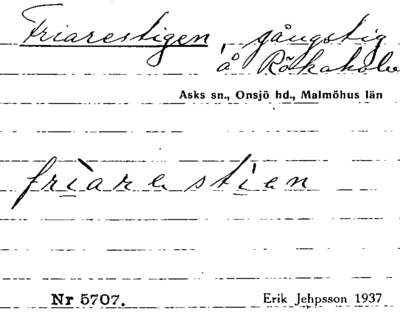 Friarestigen, gångstig
å Rökaholm
Asks sn., Onsjö hd., Malmöhus län
friarestien
Nr 5707.
Erik Jehpsson 1937